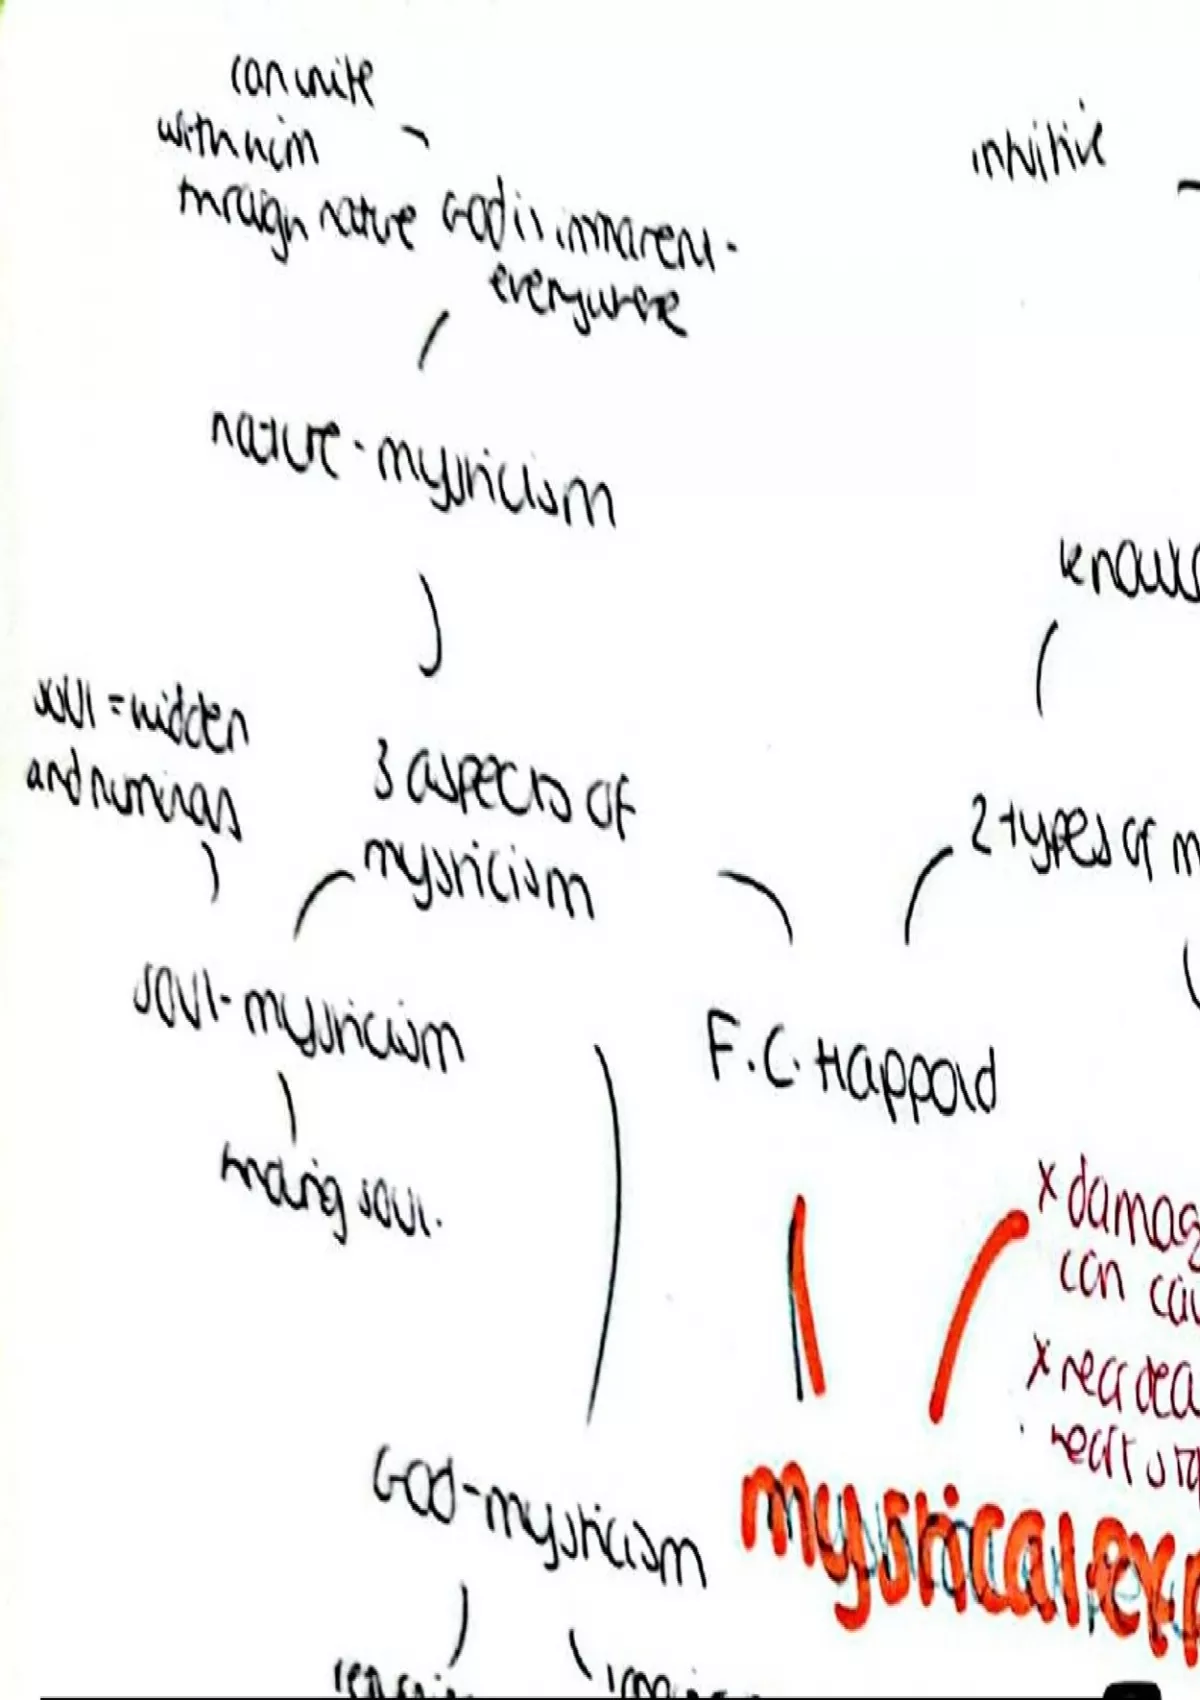 can unite
with him
through nature
God is immanent -
everywhere
intuitive
nature-mysticism
knowle
soul = hidden
and numinous
3 aspects of
mysticism
2 types of m
soul-mysticism
F.C. Happold
finding soul.
x damag
can cau
x near dea
God-mysticism
mystical exp